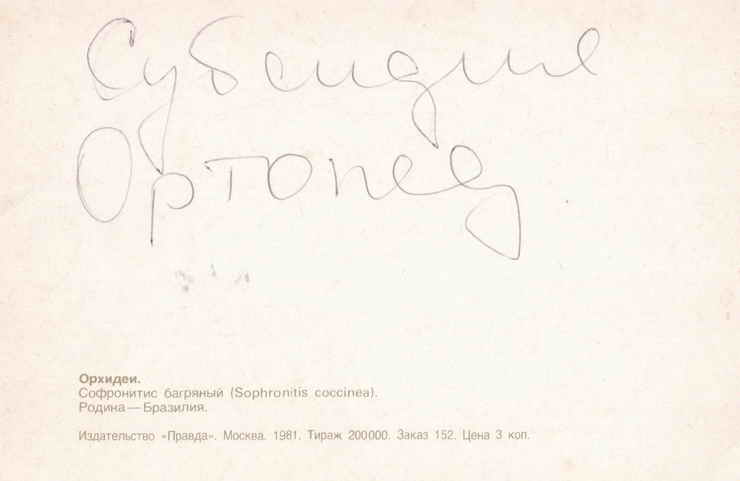 Субсидие
Ортопед
Орхидеи.
Софронитис багряный (Sophronitis coccinea).
Родина — Бразилия.
Издательство «Правда». Москва. 1981. Тираж 200000. Заказ 152. Цена 3 коп.